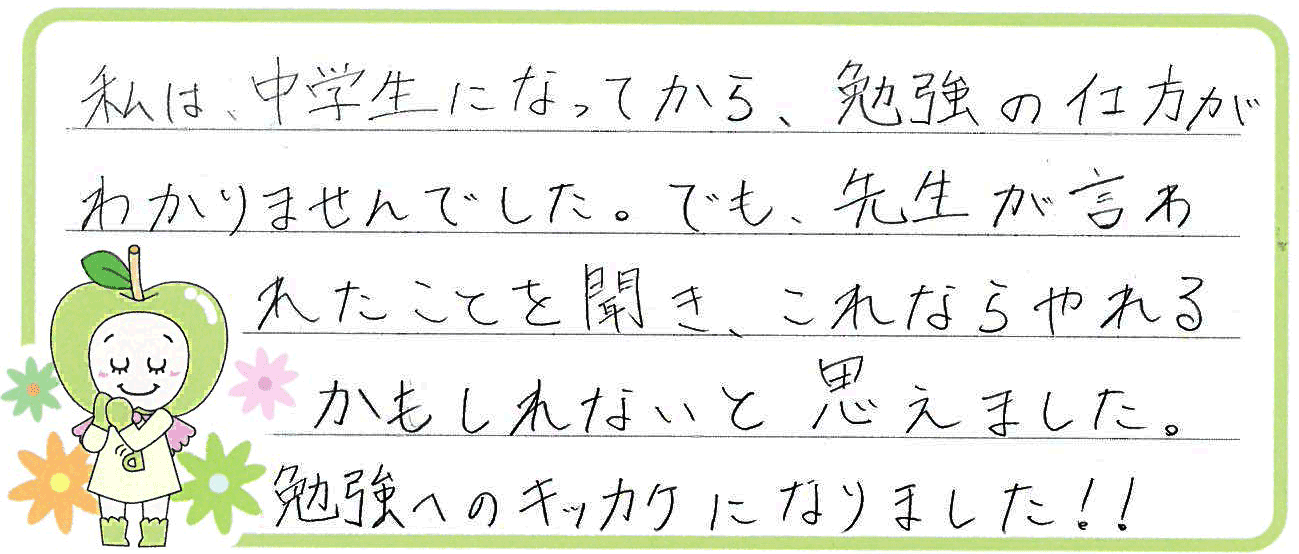 私は、中学生になってから、勉強の仕方が
わかりませんでした。でも、先生が言わ
れたことを聞き、これならやれる
かもしれないと思えました。
勉強へのキッカケになりました!!